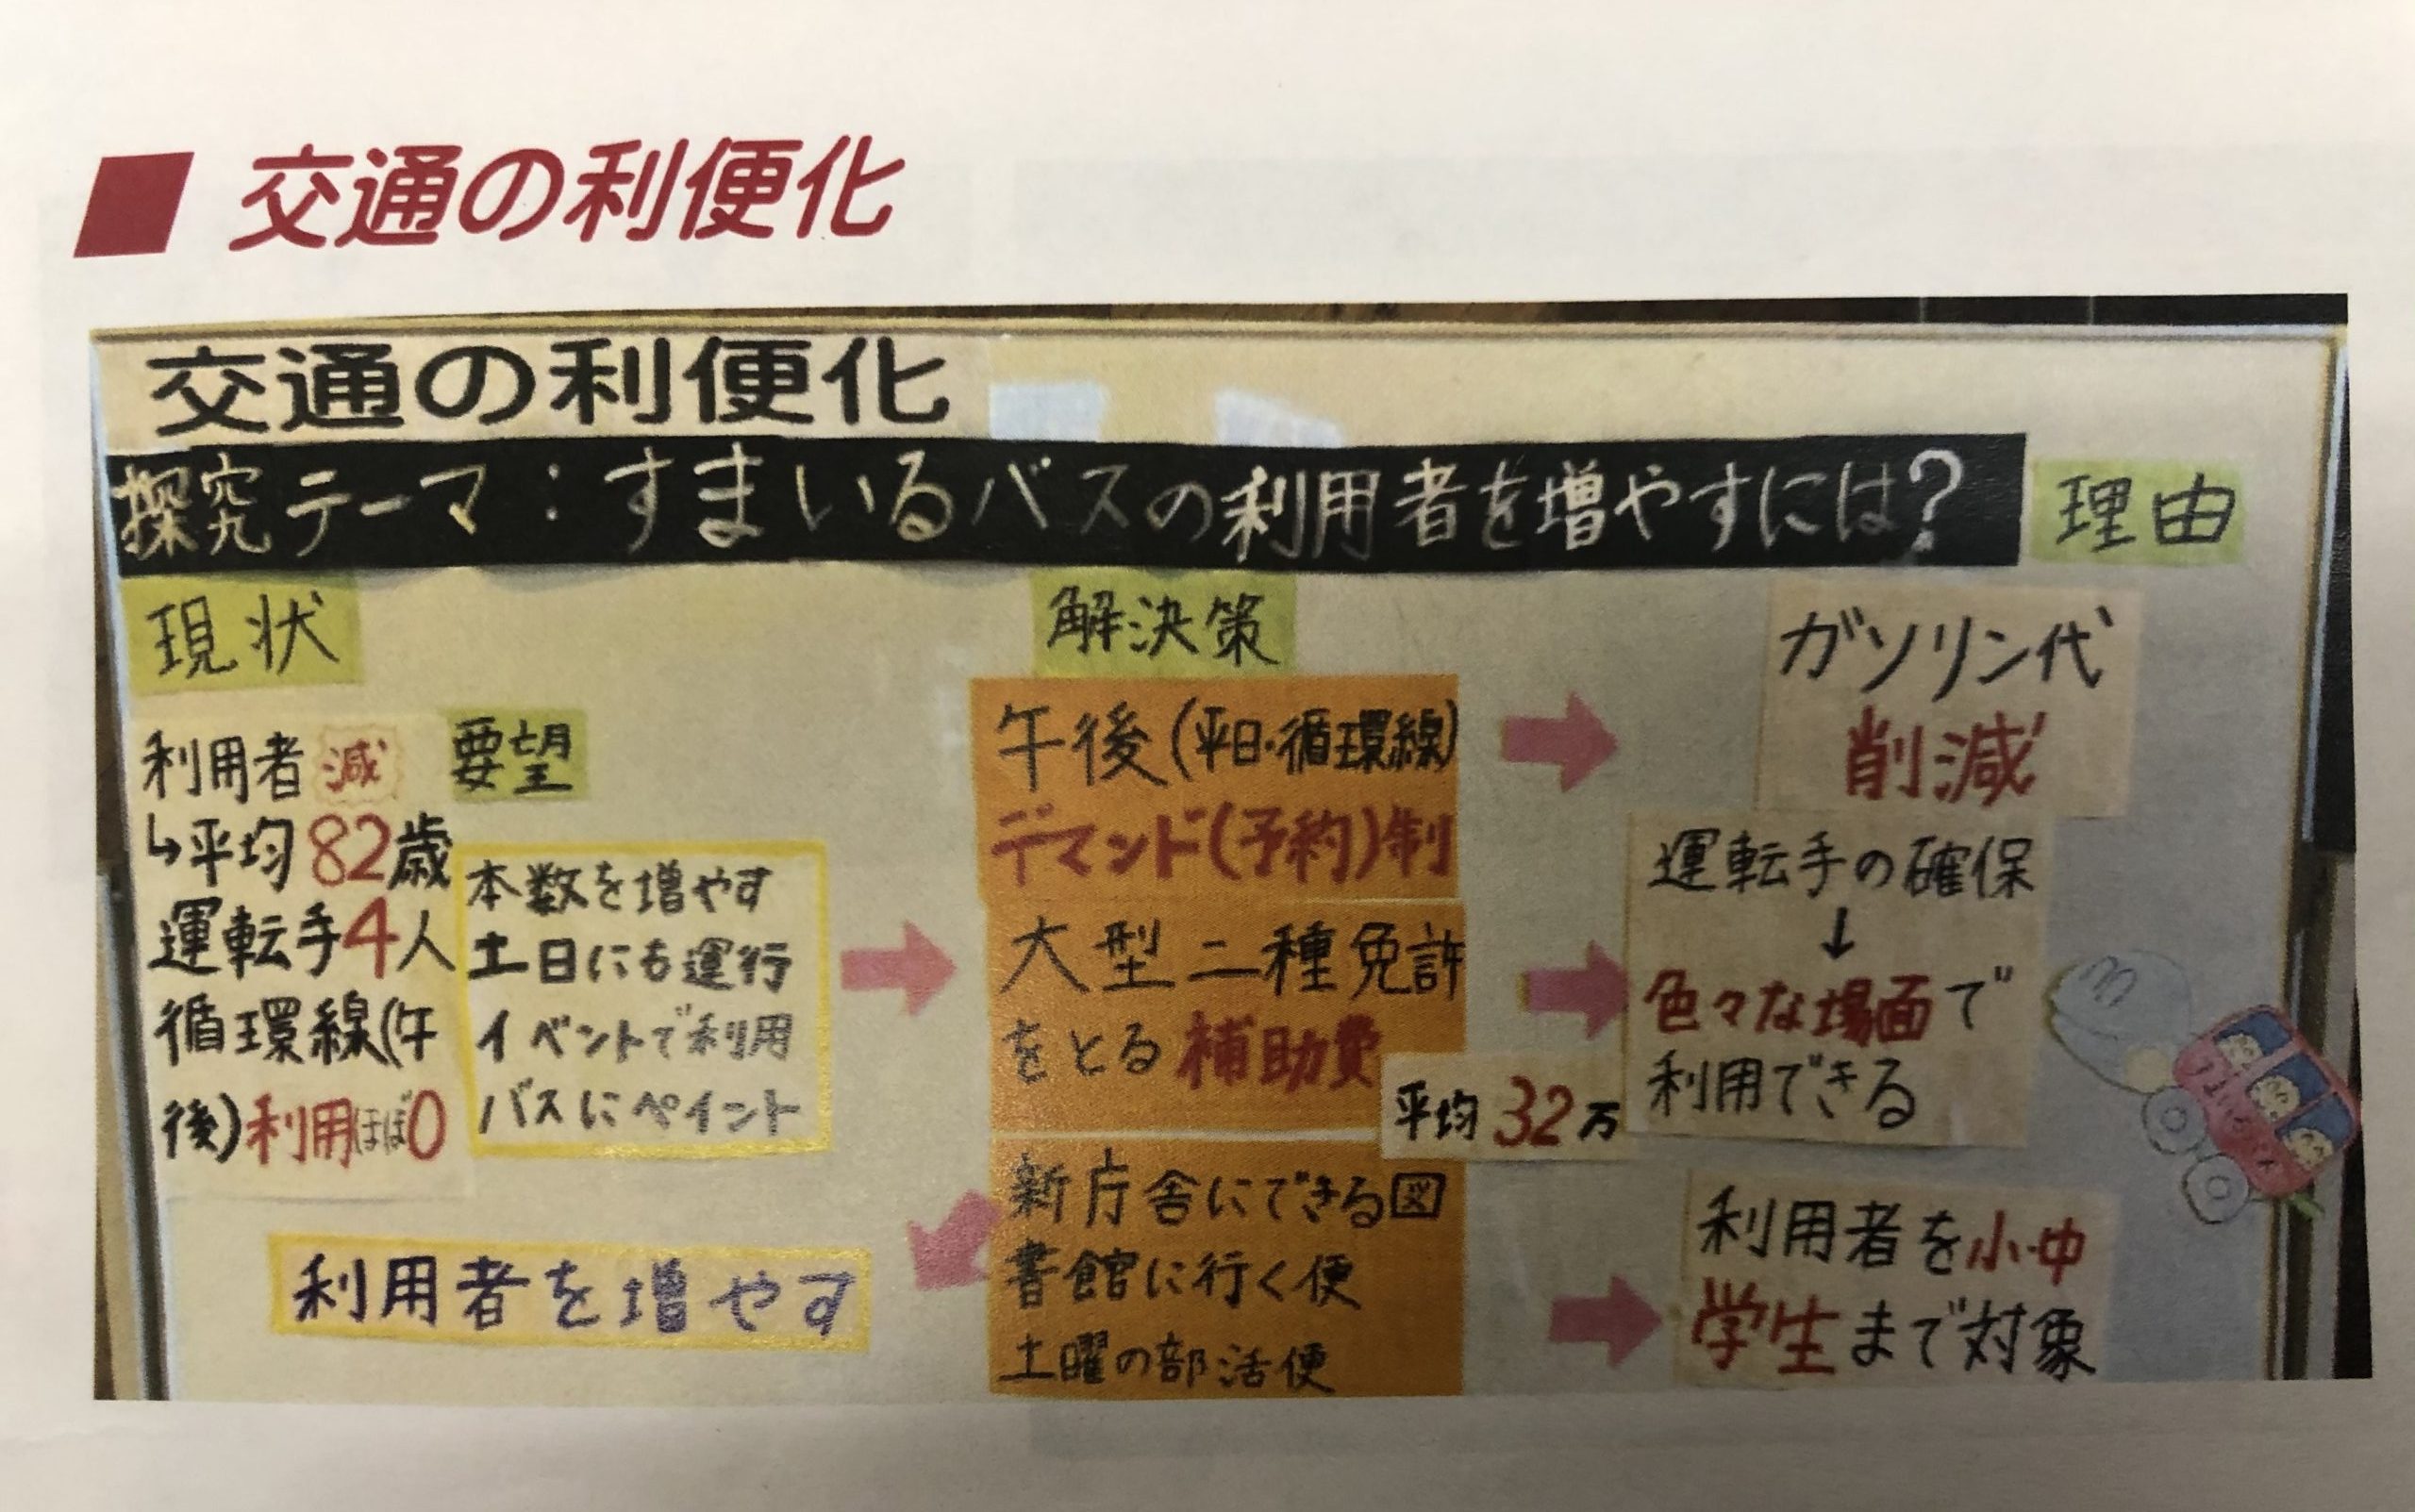 交通の利便化
交通の利便化
探究テーマ：すまいるバスの利用者を増やすには？
現状
利用者 減
↳平均82歳
運転手4人
循環線(午
後)利用ほぼ0
要望
本数を増やす
土日にも運行
イベントで利用
バスにペイント
利用者を増やす
解決策
午後(平日・循環線)
デマンド(予約)制
大型二種免許
をとる補助費
平均32万
新庁舎にできる図
書館に行く便
土曜の部活便
理由
ガソリン代
削減
運転手の確保
↓
色々な場面で
利用できる
利用者を小・中
学生まで対象
すまいるバス